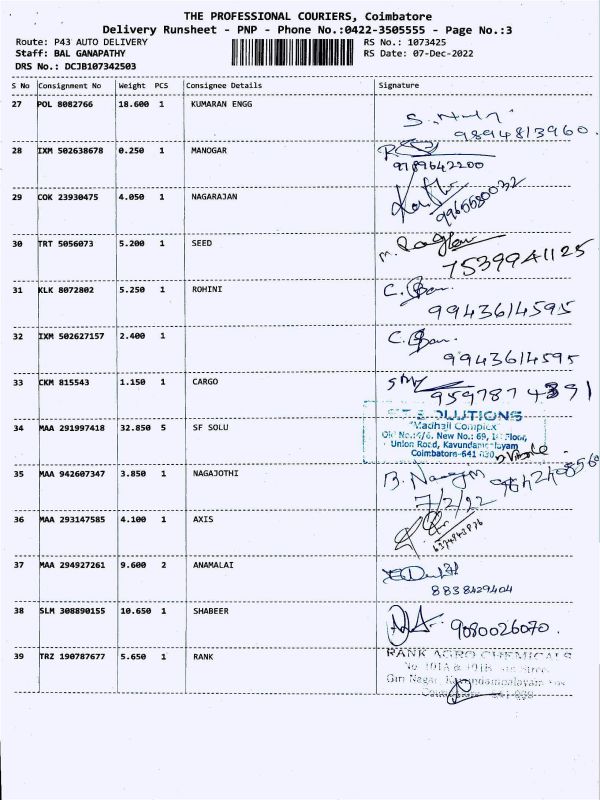 THE PROFESSIONAL COURIERS, Coimbatore
Delivery Runsheet - PNP - Phone No.:0422-3505555 - Page No.:3
Route: P43 AUTO DELIVERY RS No.: 1073425
Staff: BAL GANAPATHY RS Date: 07-Dec-2022
DRS No.: DCJB107342503
S No Consignment No Weight PCS Consignee Details Signature
27 POL 8082766 18.600 1 KUMARAN ENGG
9894813960.
28 IXM 502638678 0.250 1 MANOGAR
9789642200
29 COK 23930475 4.050 1 NAGARAJAN
9965580032
30 TRT 5056073 5.200 1 SEED
7539941125
31 KLK 8072802 5.250 1 ROHINI
9943614595
32 IXM 502627157 2.400 1
9943614595
33 CKM 815543 1.150 1 CARGO
9597874391
34 MAA 291997418 32.850 5 SF SOLU
"Madhail Complex"
New No.: 69, Floor,
Union Road,
Coimbatore-641
35 MAA 942607347 3.850 1 NAGAJOTHI
36 MAA 293147585 4.100 1 AXIS
37 MAA 294927261 9.600 2 ANAMALAI
8838429404
38 SLM 308890155 10.650 1 SHABEER
9080026070.
39 TRZ 190787677 5.650 1 RANK
RANK AGRO CHEMICALS